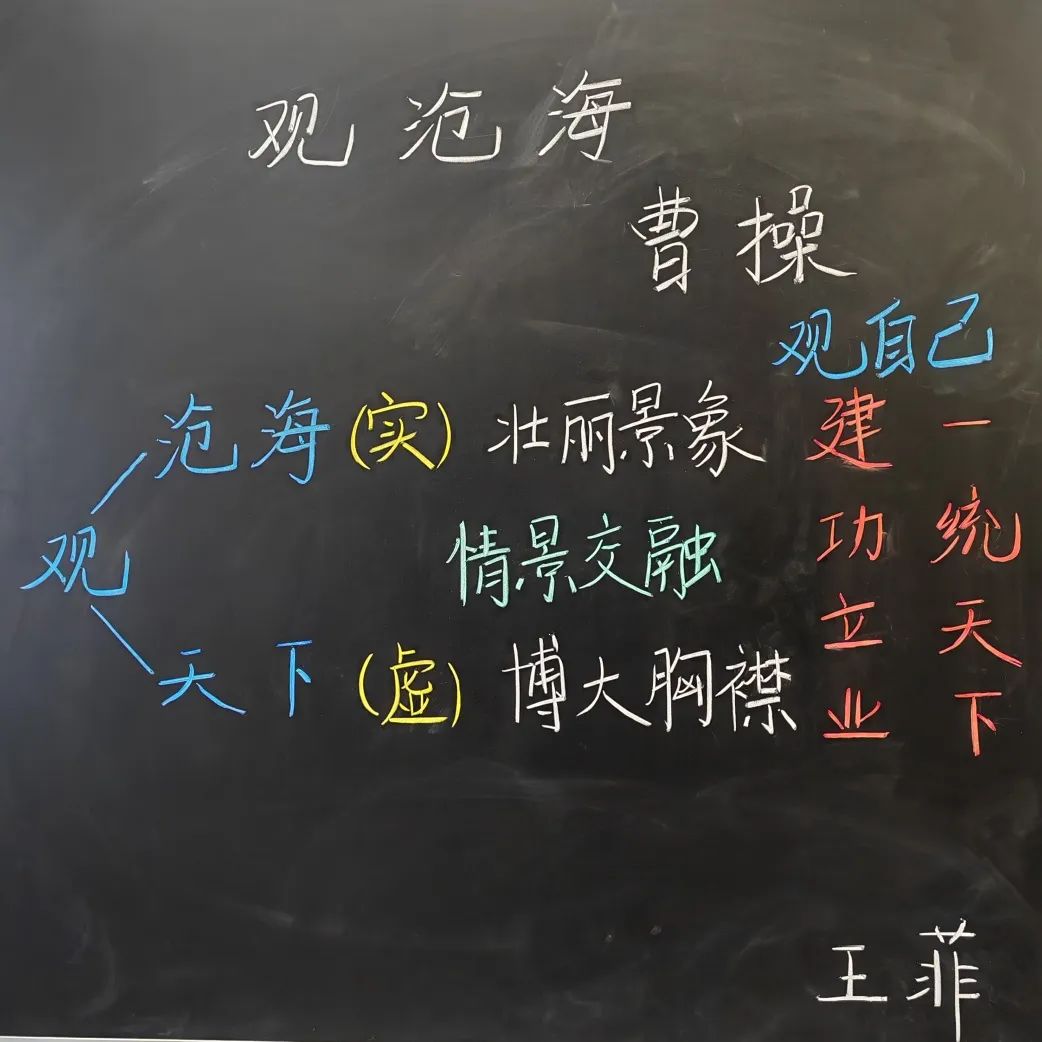 观沧海
曹操
观自己
沧海(实) 壮丽景象
观
情景交融
天下(虚) 博大胸襟
建功立业
一统天下
王菲